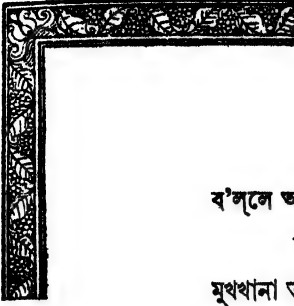 ব'ল্‌লে
মুখখানা